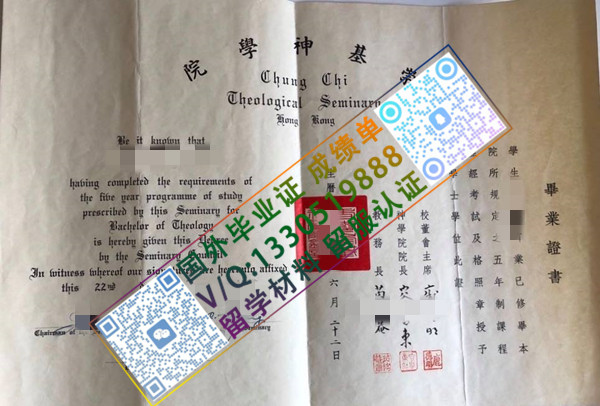 院學神基崇
Chung Chi
Theological Seminary
Hong Kong
Be it known that
having completed the requirements of
the five year programme of study
prescribed by this Seminary for
Bachelor of Theology
is hereby given this
by the Seminary Council
In witness whereof our hereunto affixed
this 22nd
Chairman of
Seminary
畢業證書
學生
業已修畢本
院所規定之五年制課程
經考試及格照章授予
學士學位此證
校董會主席
神學院院長
教務長
主曆
六月二十二日
国外毕业证 成绩单
V/Q:1330519888
留学材料 留服认证